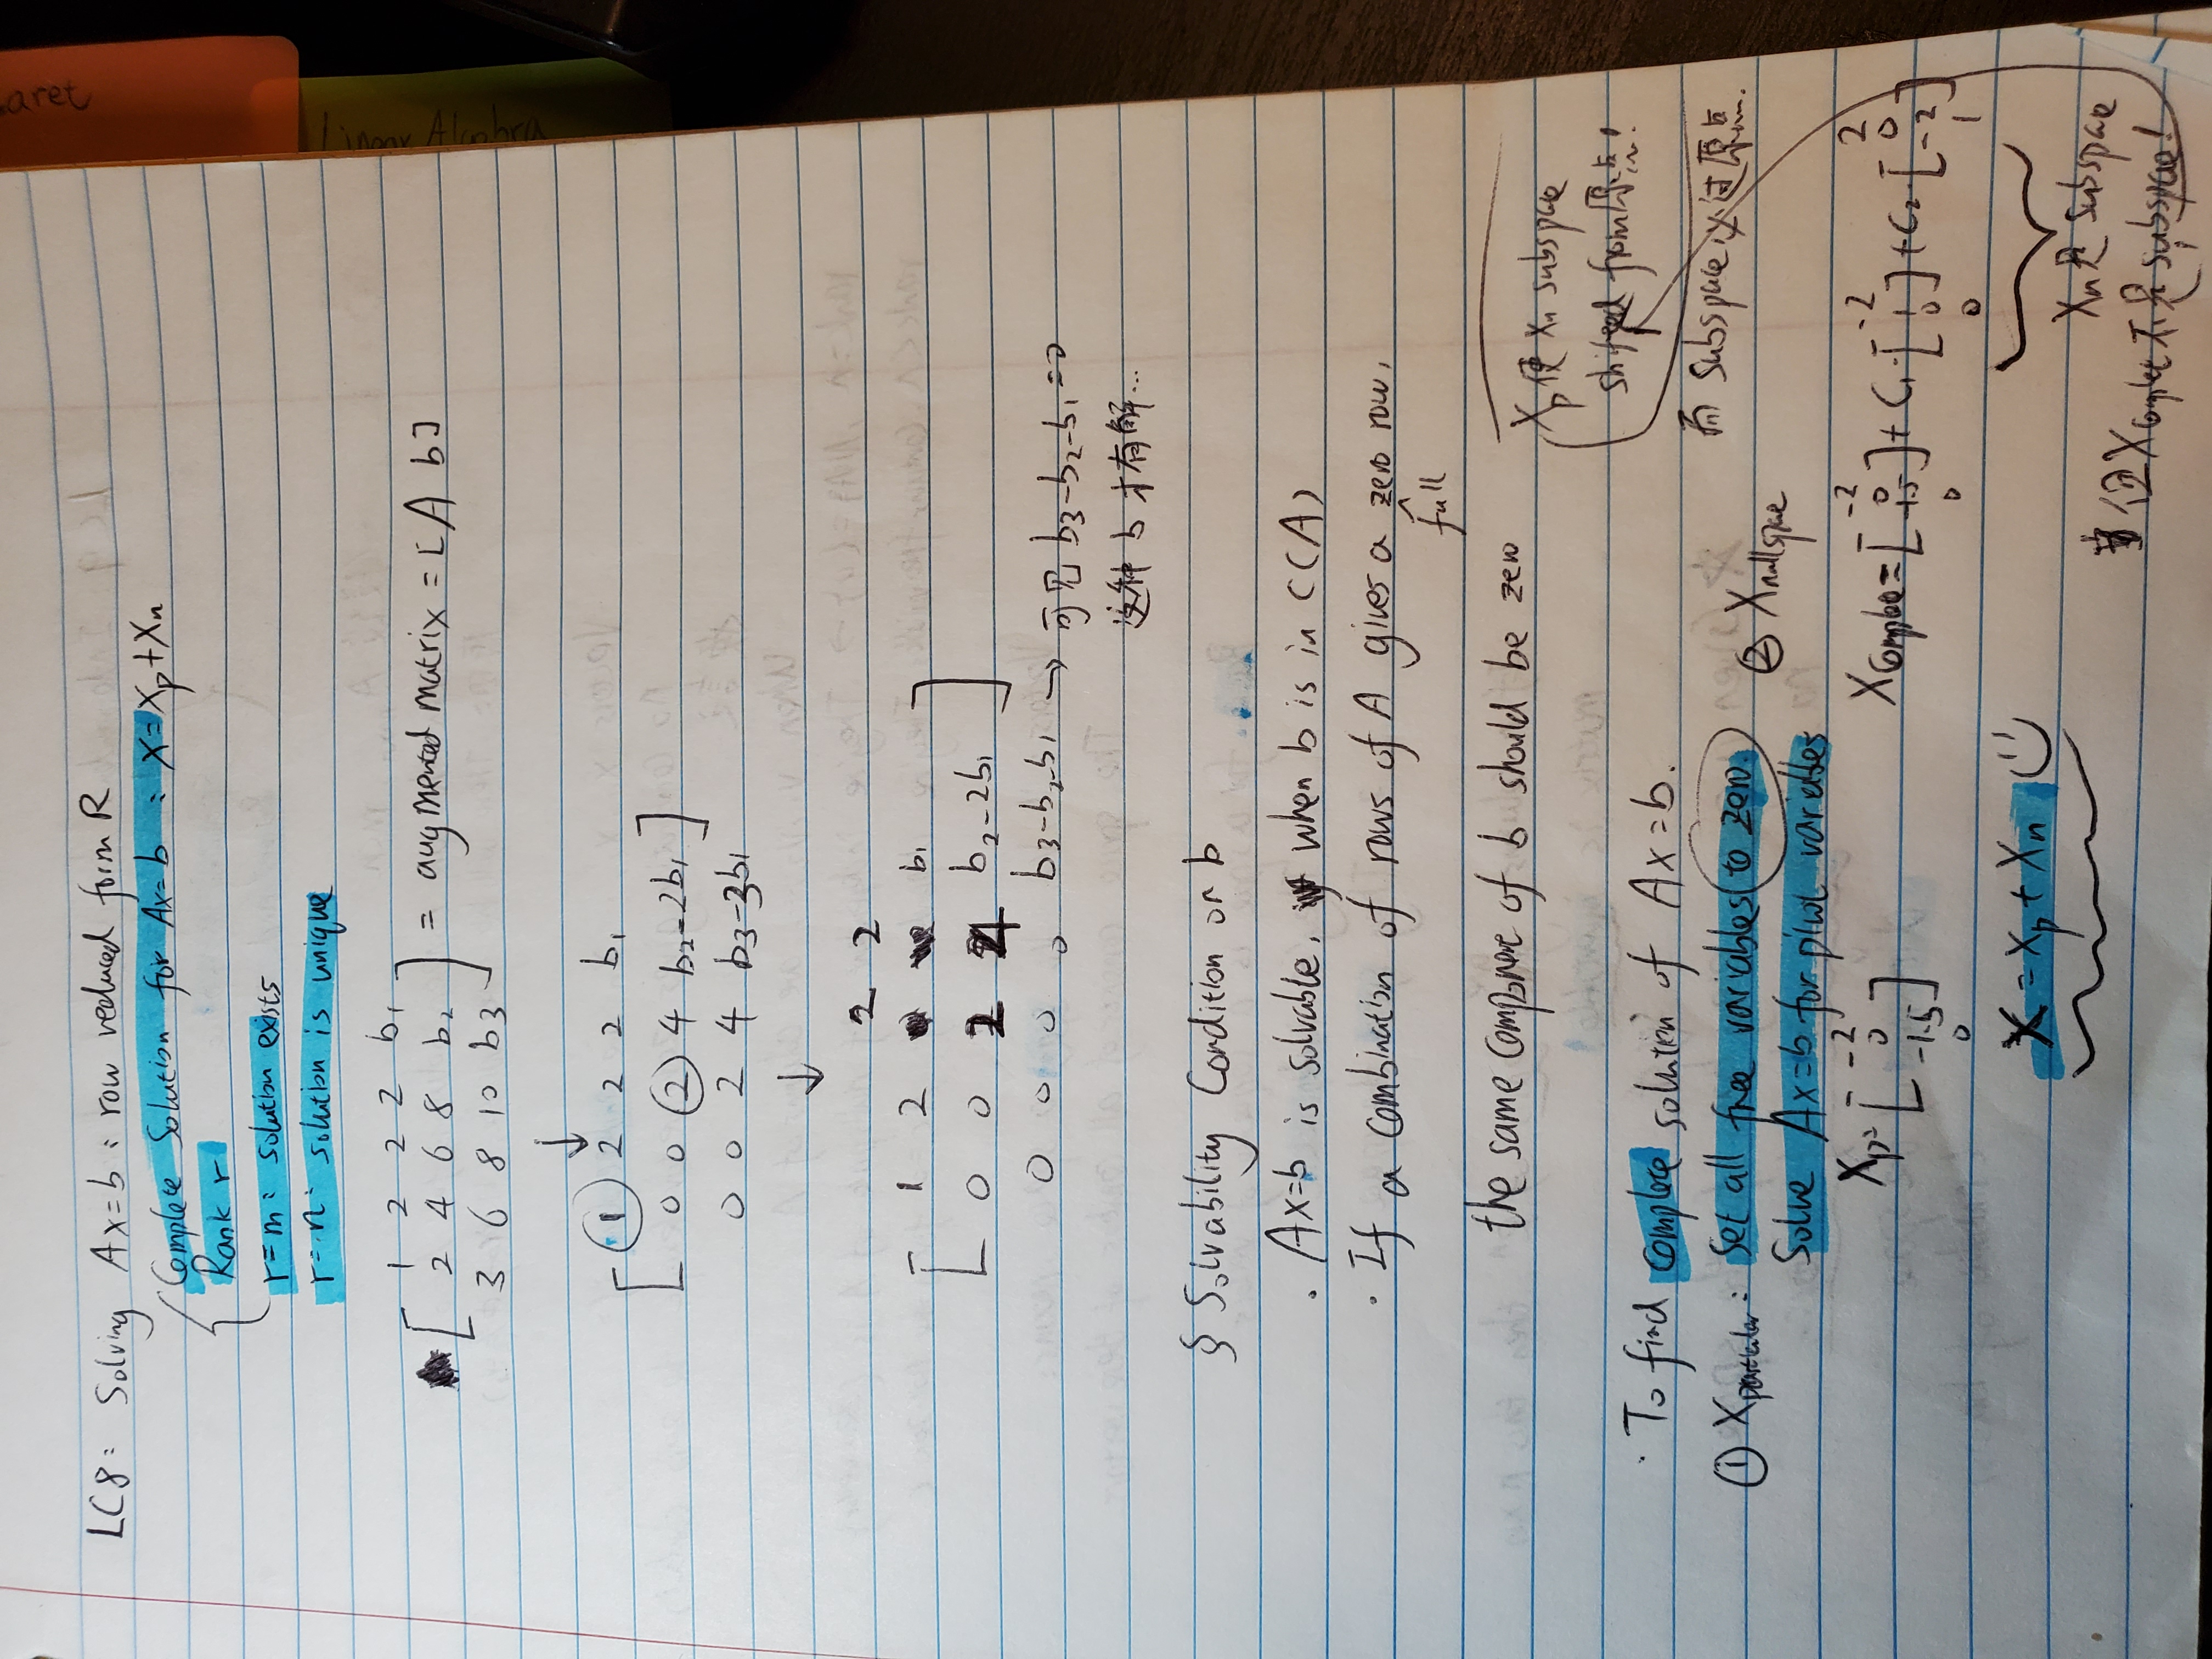 LC8: Solving Ax=b : row reduced form R
Complete Solution for Ax=b : X=Xp+Xn
Rank r
r=m: solution exists
r=n: solution is unique
1 2 2 2 b1
2 4 6 8 b2 = augmented matrix = [A b]
3 6 8 10 b3
↓
1 2 2 2 b1
0 0 2 4 b2-2b1
0 0 2 4 b3-3b1
↓
2 2
1 2 b1
0 0 2 4 b2-2b1
0 0 0 0 b3-b2-b1 → 可见 b3-b2-b1=0
这种 b 才有解...
§ Solvability Condition on b
· Ax=b is solvable, when b is in C(A)
· If a combination of rows of A gives a zero row,
full
the same component of b should be zero
Xp 使 Xn subspace
shifted from 原点!
· To find complete solution of Ax=b.
而 subspace 必过原点.
① Xparticular: Set all free variables to zero.
② Xnullspace
Solve Ax=b for pivot variables
Xp= [-2 0 -1.5 0]
Xcomplete = [-2 0 -1.5 0] + C1·[-2 1 0 0] + C2·[2 0 -2 1]
X = Xp + Xn
Xn是 subspace
但Xcomplet 不是 subspace!
Linear Algebra